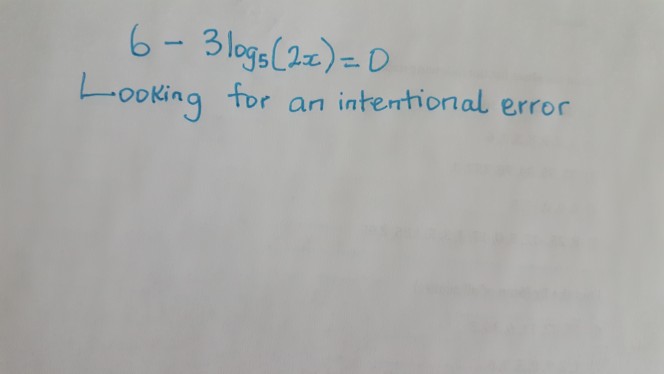 6 - 3log₅(2x) = 0
Looking for an intentional error